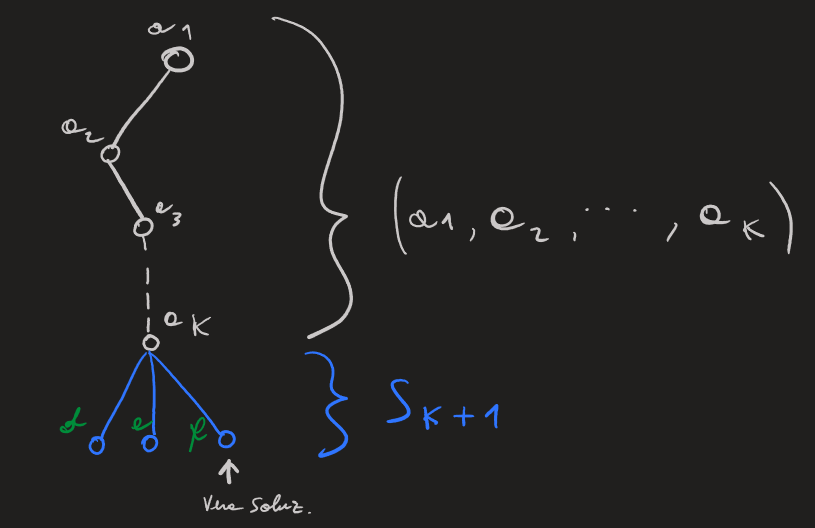 a1
a2
a3
aK
(a1, a2, ..., aK)
d e f
SK+1
Vera Soluz.